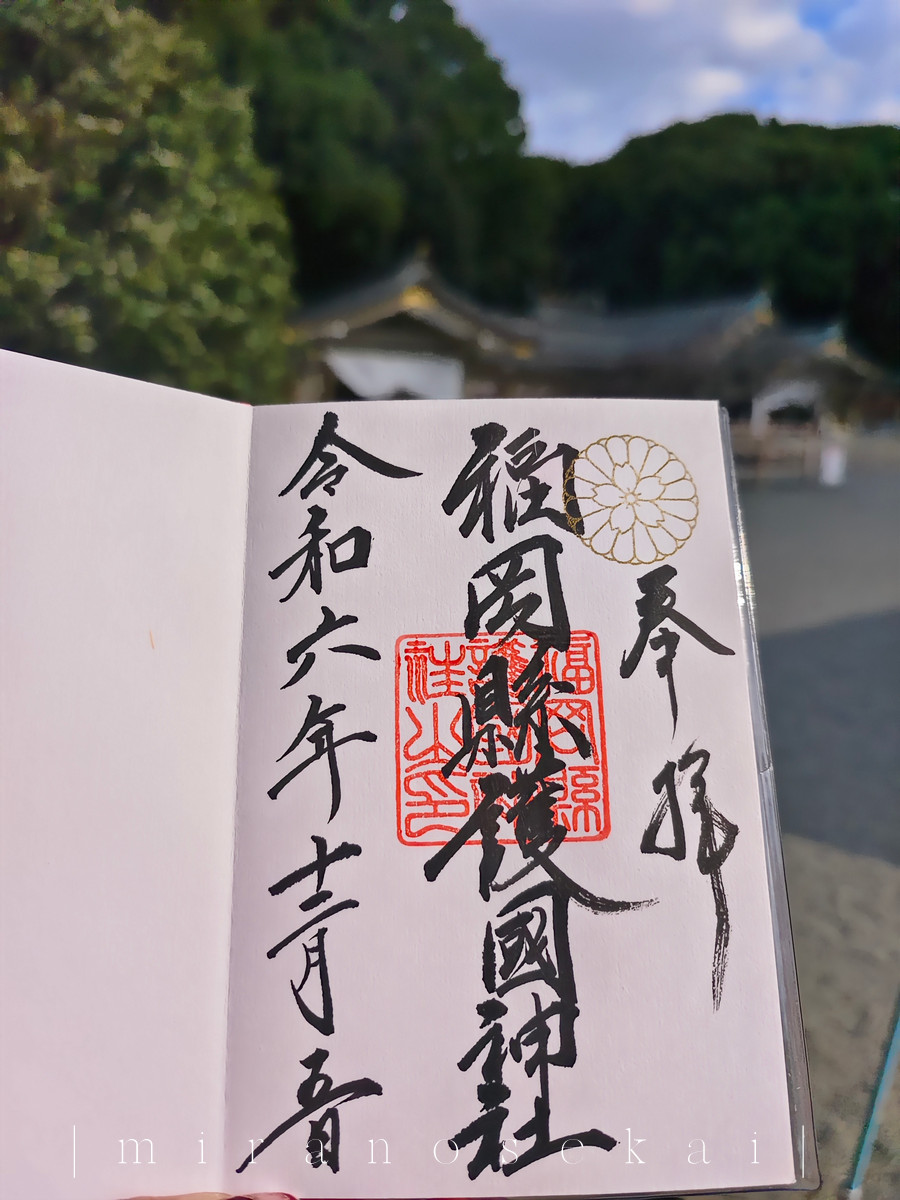 奉拝
福岡縣護國神社
福岡縣護國神社之印
令和六年十二月五日
|miranosekai|